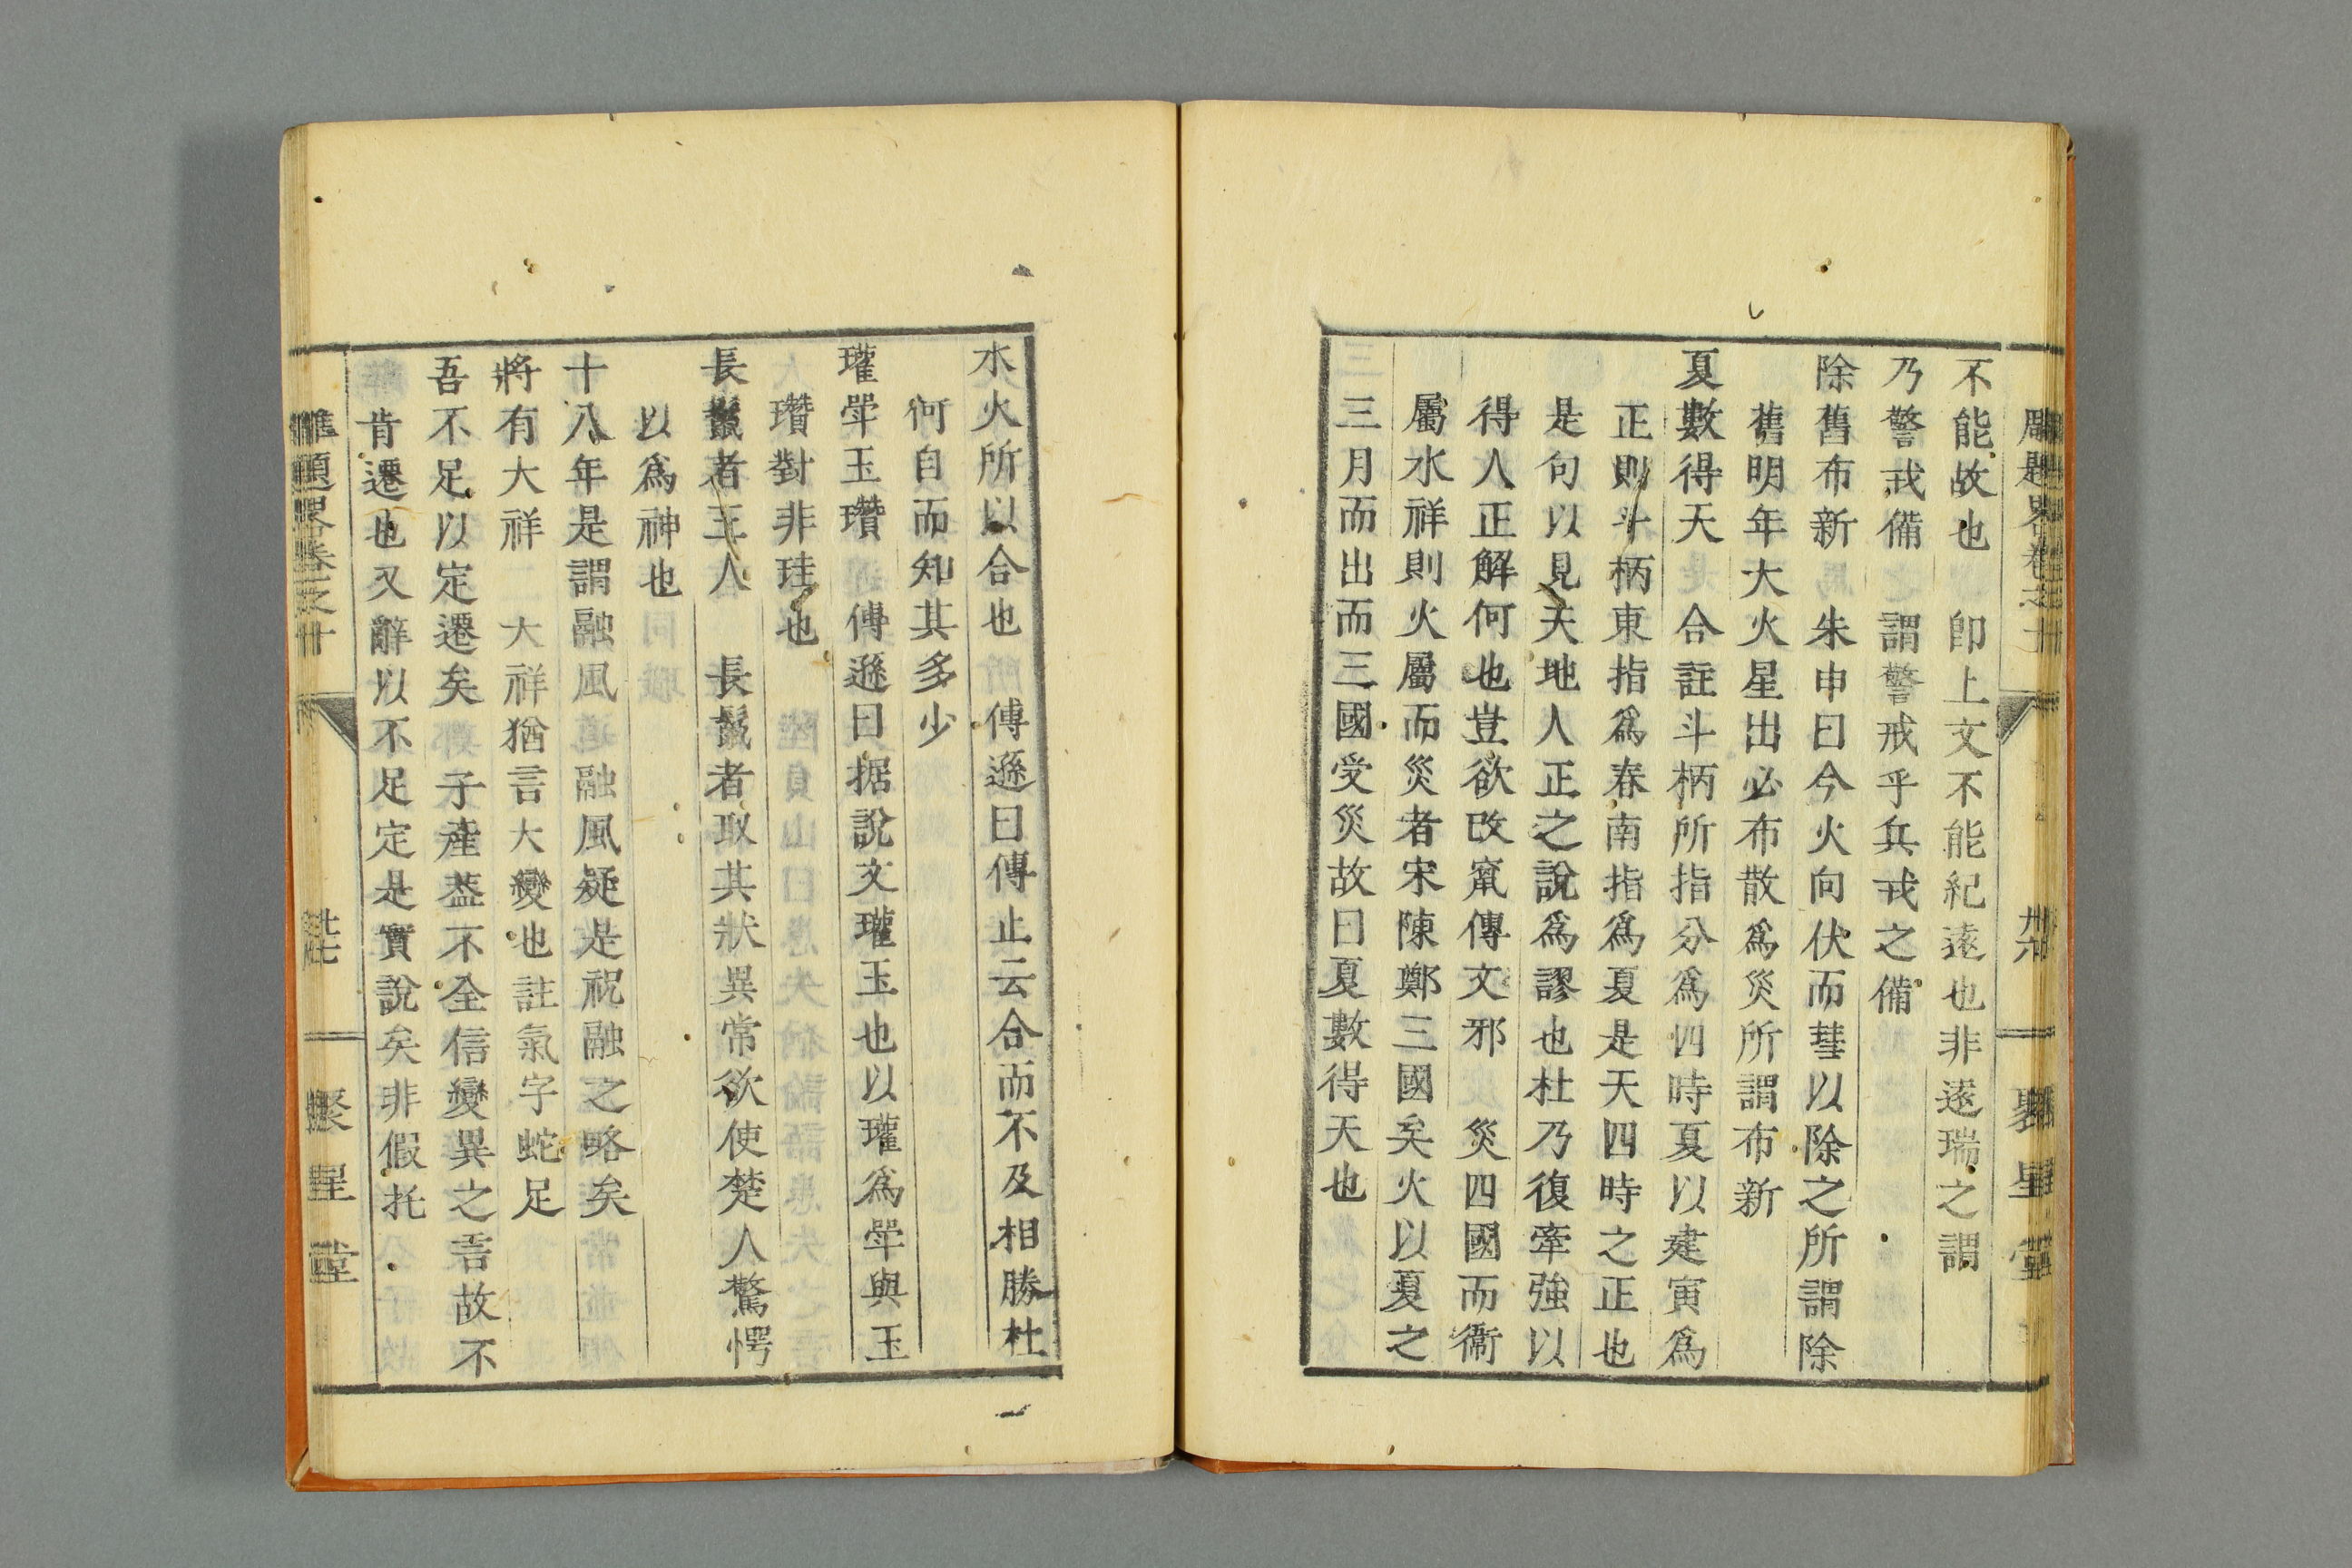 不能故也　卽上文不能紀遠也非遠瑞之謂
乃警戒備　謂警戒乎兵戎之備
除舊布新　朱申曰今火向伏而彗以除之所謂除
舊明年大火星出必布散爲災所謂布新
夏數得天　合註斗柄所指分爲四時夏以建寅爲
正則斗柄東指爲春南指爲夏是天四時之正也
是句以見天地人正之說爲謬也杜乃復牽強以
得人正解何也豈欲改竄傳文邪　災四國而衞
屬水祥則火屬而災者宋陳鄭三國矣火以夏之
三月而出而三國受災故曰夏數得天也
水火所以合也　傅遜曰傳止云合而不及相勝杜
何自而知其多少
瓘斝玉瓚　傅遜曰据說文瓘玉也以瓘爲斝與玉
瓚對非珪也
長鬛者三人　長鬛者取其狀異常欲使楚人驚愕
以爲神也
十八年是謂融風　融風疑是祝融之略矣
將有大祥　大祥猶言大變也註氣字蛇足
吾不足以定遷矣　子產葢不全信變異之言故不
肯遷也又辭以不足定是實說矣非假托
雕題畧卷之廿
聚星堂